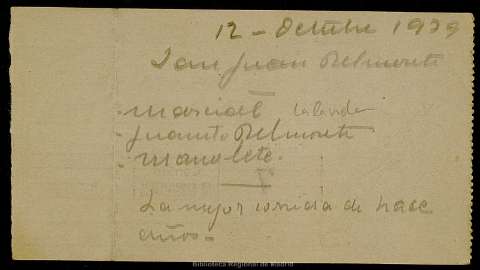 12 - Octubre 1939
San Juan Belmonte
- Marcial Lalanda
- Juanito Belmonte
- Manolete.
La mejor corrida de hace
años.
Biblioteca Regional de Madrid